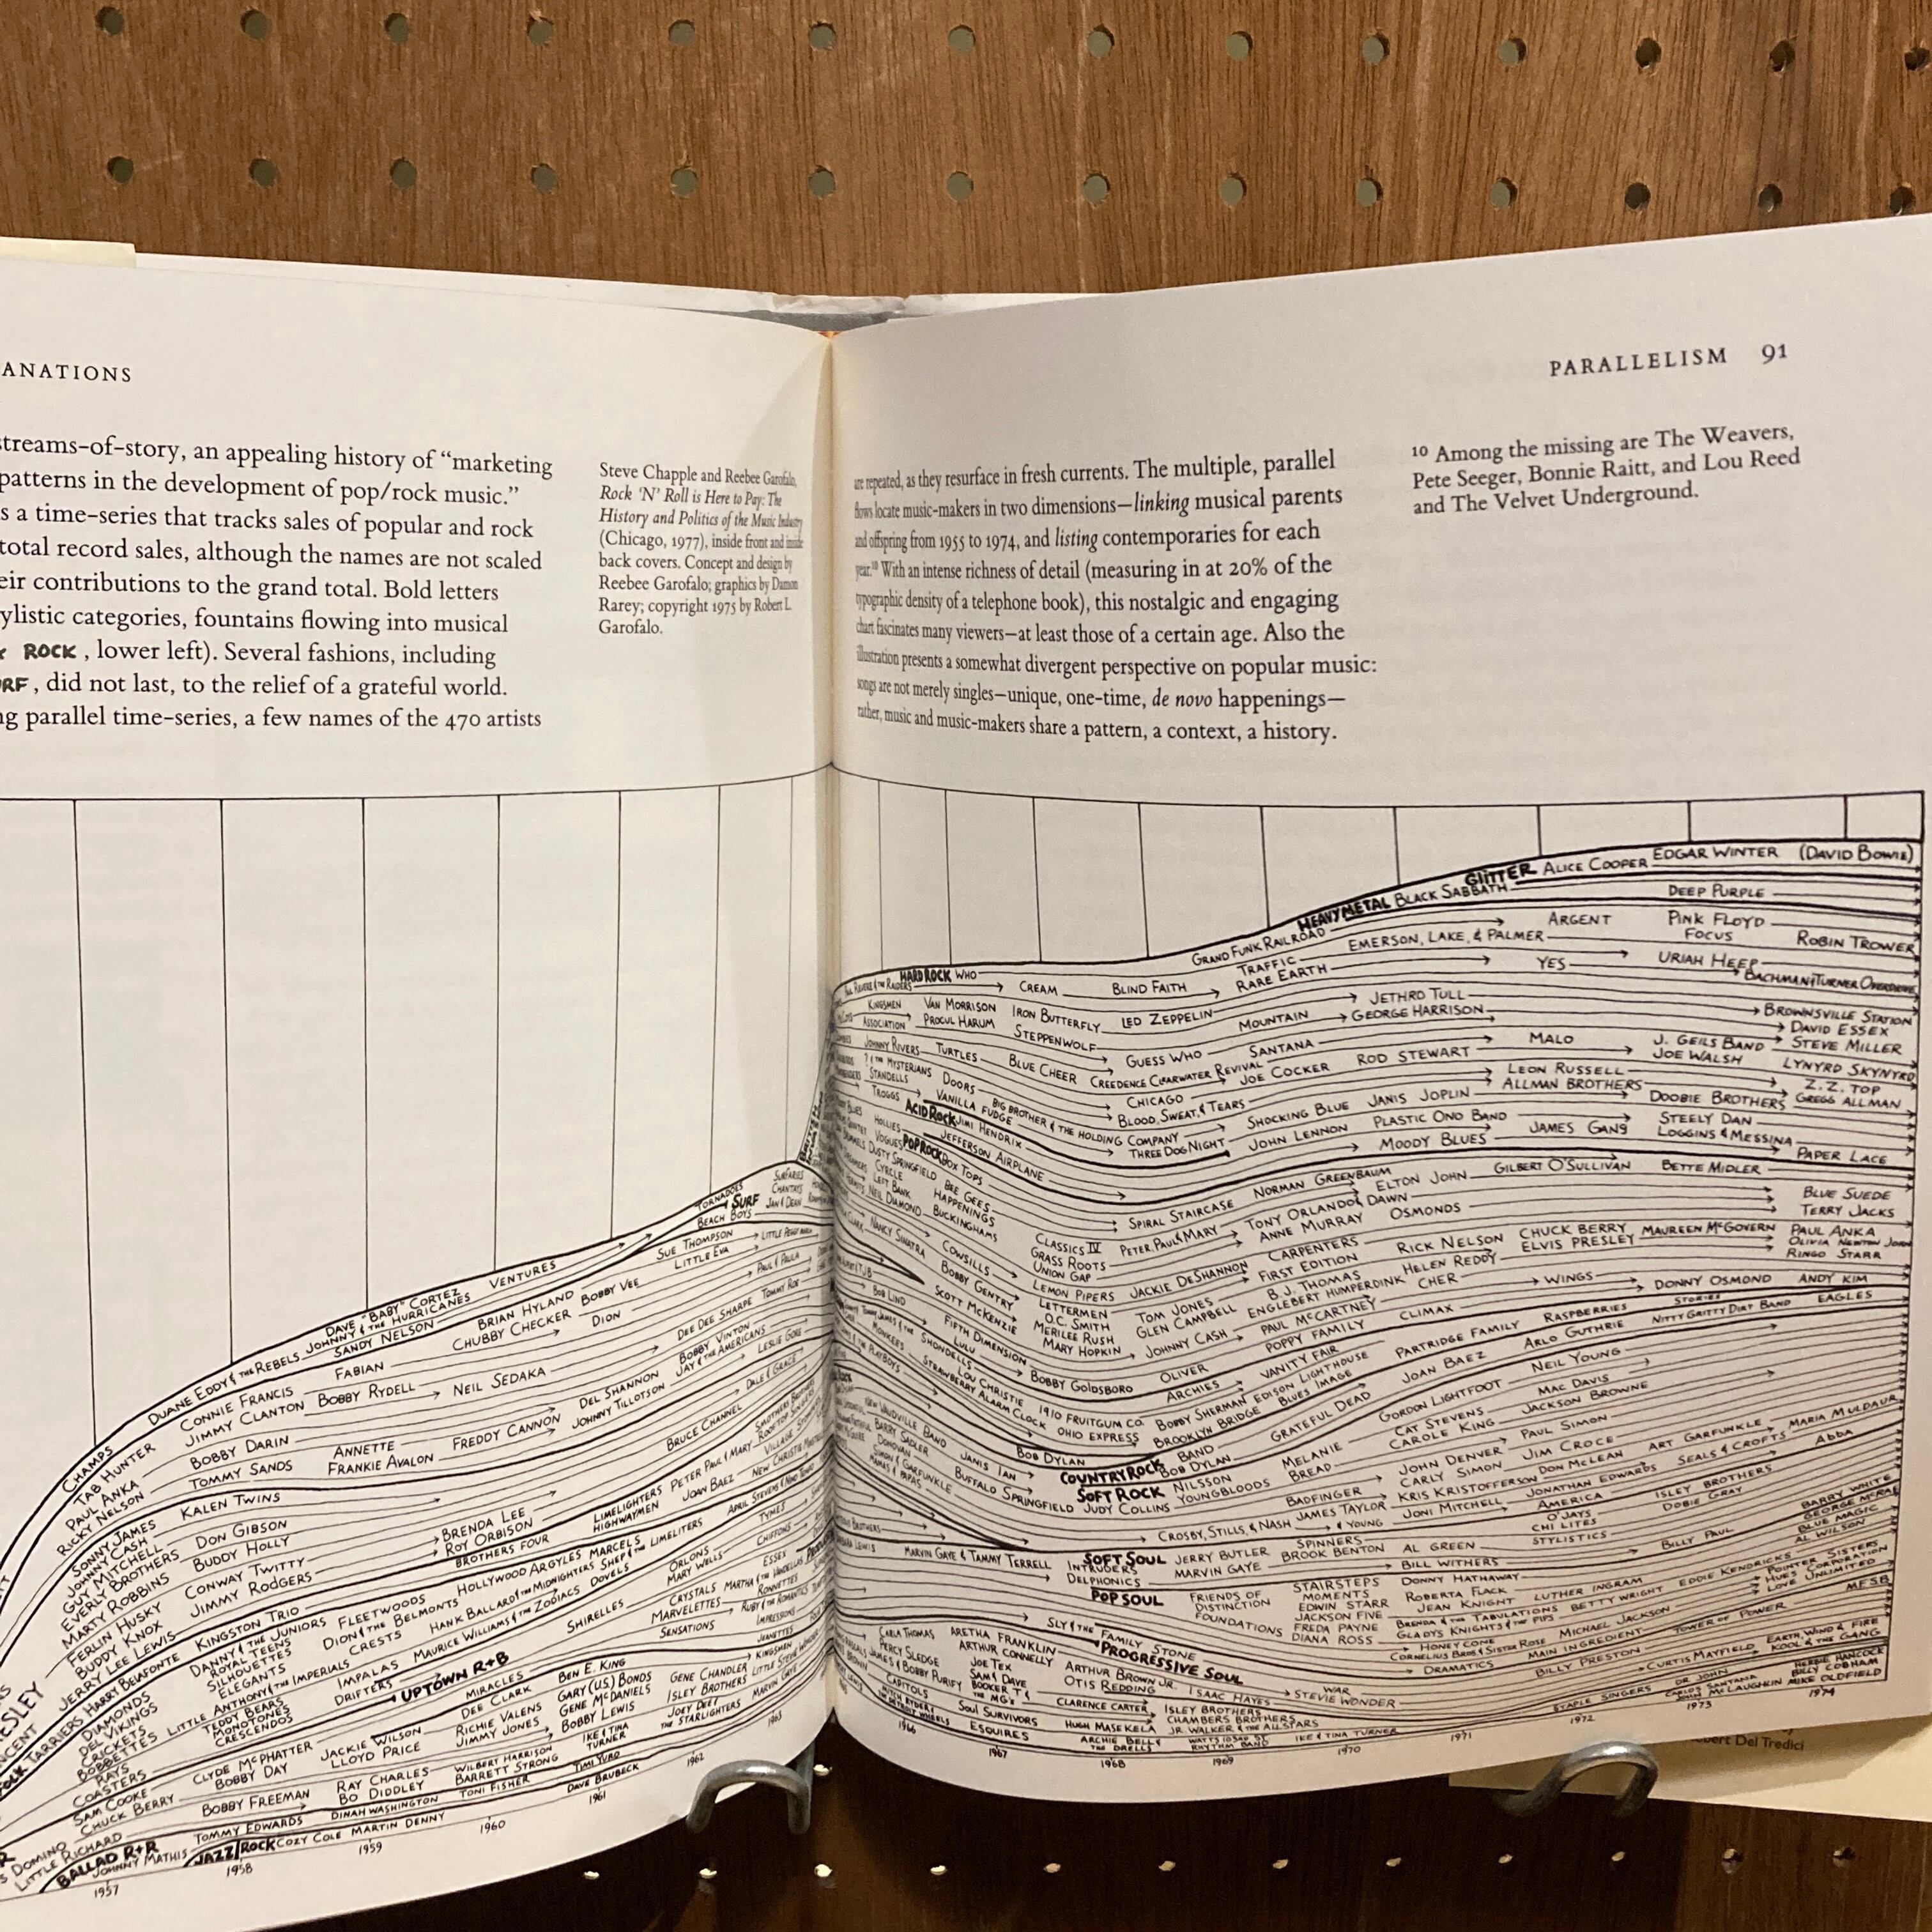 ANATIONS
streams-of-story, an appealing history of “marketing
patterns in the development of pop/rock music.”
s a time-series that tracks sales of popular and rock
total record sales, although the names are not scaled
eir contributions to the grand total. Bold letters
ylistic categories, fountains flowing into musical
ROCK , lower left). Several fashions, including
RF , did not last, to the relief of a grateful world.
ng parallel time-series, a few names of the 470 artists
Steve Chapple and Reebee Garofalo,
Rock ’N’ Roll is Here to Pay: The
History and Politics of the Music Industry
(Chicago, 1977), inside front and inside
back covers. Concept and design by
Reebee Garofalo; graphics by Damon
Rarey; copyright 1975 by Robert L.
Garofalo.
PARALLELISM 91
are repeated, as they resurface in fresh currents. The multiple, parallel
flows locate music-makers in two dimensions—linking musical parents
and offspring from 1955 to 1974, and listing contemporaries for each
year.¹⁰ With an intense richness of detail (measuring in at 20% of the
typographic density of a telephone book), this nostalgic and engaging
chart fascinates many viewers—at least those of a certain age. Also the
illustration presents a somewhat divergent perspective on popular music:
songs are not merely singles—unique, one-time, de novo happenings—
rather, music and music-makers share a pattern, a context, a history.
¹⁰ Among the missing are The Weavers,
Pete Seeger, Bonnie Raitt, and Lou Reed
and The Velvet Underground.
CHAMPS
DUANE EDDY & THE REBELS
DAVE "BABY" CORTEZ
JOHNNY & THE HURRICANES
SANDY NELSON
VENTURES
TORNADOES
SURF
BEACH BOYS
SURFARIS
CHANTAYS
JAN & DEAN
TAB HUNTER
PAUL ANKA
RICKY NELSON
CONNIE FRANCIS
JIMMY CLANTON
FABIAN
BOBBY RYDELL
BRIAN HYLAND
CHUBBY CHECKER
BOBBY VEE
DION
SUE THOMPSON
LITTLE EVA
LITTLE PEGGY MARCH
PAUL & PAULA
TOMMY ROE
DEE DEE SHARPE
BOBBY VINTON
JAY & THE AMERICANS
LESLIE GORE
DALE & GRACE
NEIL SEDAKA
DEL SHANNON
JOHNNY TILLOTSON
BOBBY DARIN
TOMMY SANDS
ANNETTE
FRANKIE AVALON
FREDDY CANNON
BRUCE CHANNEL
SONNY JAMES
JOHNNY CASH
GUY MITCHELL
EVERLY BROTHERS
MARTY ROBBINS
FERLIN HUSKY
BUDDY KNOX
JERRY LEE LEWIS
KALEN TWINS
DON GIBSON
BUDDY HOLLY
CONWAY TWITTY
JIMMY RODGERS
BRENDA LEE
ROY ORBISON
BROTHERS FOUR
LIMELIGHTERS
HIGHWAYMEN
PETER PAUL & MARY
JOAN BAEZ
TARRIERS
HARRY BELAFONTE
KINGSTON TRIO
DANNY & THE JUNIORS
ROYAL TEENS
SILHOUETTES
ELEGANTS
LITTLE ANTHONY & THE IMPERIALS
TEDDY BEARS
MONOTONES
CRESCENDOS
FLEETWOODS
DION & THE BELMONTS
CRESTS
IMPALAS
DRIFTERS
HOLLYWOOD ARGYLES
HANK BALLARD & THE MIDNIGHTERS
MAURICE WILLIAMS & THE ZODIACS
MARCELS
SHEP & THE LIMELITERS
DOVELS
APRIL STEVENS & NINO TEMPO
TYMES
CHIFFONS
ESSEX
ORLONS
MARY WELLS
SHIRELLES
CRYSTALS
MARVELETTES
SENSATIONS
MARTHA & THE VANDELLAS
RONNETTES
RUBY & THE ROMANTICS
IMPRESSIONS
JEANETTES
KINGSMEN
DIAMONDS
DEL VIKINGS
CRICKETS
BOBBETTES
RAYS
COASTERS
SAM COOKE
CHUCK BERRY
UPTOWN R+B
MIRACLES
DEE CLARK
BEN E. KING
GARY (US) BONDS
GENE McDANIELS
BOBBY LEWIS
GENE CHANDLER
ISLEY BROTHERS
JOEY DEE & THE STARLIGHTERS
MARVIN GAYE
CLYDE McPHATTER
BOBBY DAY
JACKIE WILSON
LLOYD PRICE
RICHIE VALENS
JIMMY JONES
IKE & TINA TURNER
BOBBY FREEMAN
RAY CHARLES
BO DIDDLEY
WILBERT HARRISON
BARRETT STRONG
TIMI YURO
DOMINO
LITTLE RICHARD
BALLAD R+R
JOHNNY MATHIS
TOMMY EDWARDS
DINAH WASHINGTON
TONI FISHER
DAVE BRUBECK
JAZZ/ROCK
COZY COLE
MARTIN DENNY
1957
1958
1959
1960
1961
1962
1963
GLITTER
ALICE COOPER
EDGAR WINTER
(DAVID BOWIE)
HEAVY METAL
BLACK SABBATH
DEEP PURPLE
GRAND FUNK RAILROAD
ARGENT
PINK FLOYD
FOCUS
ROBIN TROWER
HARD ROCK
WHO
PAUL REVERE & THE RAIDERS
CREAM
BLIND FAITH
TRAFFIC
RARE EARTH
EMERSON, LAKE, & PALMER
YES
URIAH HEEP
BACHMAN TURNER OVERDRIVE
KINGSMEN
ASSOCIATION
VAN MORRISON
PROCUL HARUM
IRON BUTTERFLY
STEPPENWOLF
LED ZEPPELIN
MOUNTAIN
JETHRO TULL
GEORGE HARRISON
BROWNSVILLE STATION
DAVID ESSEX
JOHNNY RIVERS
? & THE MYSTERIANS
STANDELLS
TROGGS
TURTLES
DOORS
VANILLA FUDGE
BLUE CHEER
GUESS WHO
CREEDENCE CLEARWATER REVIVAL
SANTANA
JOE COCKER
ROD STEWART
MALO
J. GEILS BAND
JOE WALSH
STEVE MILLER
LYNYRD SKYNYRD
CHICAGO
BLOOD, SWEAT, & TEARS
BIG BROTHER & THE HOLDING COMPANY
THREE DOG NIGHT
SHOCKING BLUE
JANIS JOPLIN
LEON RUSSELL
ALLMAN BROTHERS
DOOBIE BROTHERS
Z.Z. TOP
GREGG ALLMAN
JOHN LENNON
PLASTIC ONO BAND
MOODY BLUES
JAMES GANG
STEELY DAN
LOGGINS & MESSINA
PAPER LACE
ACID ROCK
JIMI HENDRIX
JEFFERSON AIRPLANE
HOLLIES
VOGUES
POP ROCK
BOX TOPS
DUSTY SPRINGFIELD
CYRCLE
LEFT BANK
NEIL DIAMOND
BEE GEES
HAPPENINGS
BUCKINGHAMS
NANCY SINATRA
COWSILLS
BOBBY GENTRY
SCOTT McKENZIE
CLASSICS IV
GRASS ROOTS
UNION GAP
LEMON PIPERS
LETTERMEN
O.C. SMITH
MERILEE RUSH
MARY HOPKIN
SPIRAL STAIRCASE
PETER, PAUL & MARY
JACKIE DESHANNON
TOM JONES
GLEN CAMPBELL
JOHNNY CASH
NORMAN GREENBAUM
TONY ORLANDO & DAWN
ANNE MURRAY
CARPENTERS
FIRST EDITION
B.J. THOMAS
ENGLEBERT HUMPERDINK
PAUL McCARTNEY
POPPY FAMILY
ELTON JOHN
OSMONDS
RICK NELSON
HELEN REDDY
CHER
CLIMAX
GILBERT O'SULLIVAN
CHUCK BERRY
ELVIS PRESLEY
WINGS
BETTE MIDLER
MAUREEN McGOVERN
DONNY OSMOND
BLUE SUEDE
TERRY JACKS
PAUL ANKA
OLIVIA NEWTON JOHN
RINGO STARR
ANDY KIM
BOB LIND
FIFTH DIMENSION
LULU
TOMMY JAMES & THE SHONDELLS
MONKEES
LOU CHRISTIE
STRAWBERRY ALARM CLOCK
BOBBY GOLDSBORO
1910 FRUITGUM CO.
OHIO EXPRESS
OLIVER
ARCHIES
BOBBY SHERMAN
BROOKLYN BRIDGE
VANITY FAIR
EDISON LIGHTHOUSE
BLUES IMAGE
PARTRIDGE FAMILY
RASPBERRIES
STORIES
NITTY GRITTY DIRT BAND
EAGLES
BOB DYLAN
COUNTRY ROCK
BAND
BOB DYLAN
GRATEFUL DEAD
JOAN BAEZ
ARLO GUTHRIE
NEW VAUDVILLE BAND
BARRY SADLER
DONOVAN
SIMON & GARFUNKLE
MAMAS & PAPAS
JANIS IAN
BUFFALO SPRINGFIELD
SOFT ROCK
JUDY COLLINS
NILSSON
YOUNGBLOODS
MELANIE
BREAD
BADFINGER
JAMES TAYLOR
CROSBY, STILLS, & NASH
& YOUNG
GORDON LIGHTFOOT
CAT STEVENS
CAROLE KING
JOHN DENVER
CARLY SIMON
KRIS KRISTOFFERSON
JONI MITCHELL
NEIL YOUNG
MAC DAVIS
JACKSON BROWNE
PAUL SIMON
JIM CROCE
DON McLEAN
JONATHAN EDWARDS
AMERICA
ART GARFUNKLE
SEALS & CROFTS
MARIA MULDAUR
ABBA
MARVIN GAYE & TAMMY TERRELL
INTRUDERS
DELPHONICS
SOFT SOUL
JERRY BUTLER
MARVIN GAYE
SPINNERS
BROOK BENTON
AL GREEN
BILL WITHERS
DONNY HATHAWAY
O'JAYS
CHI LITES
STYLISTICS
ISLEY BROTHERS
DOBIE GRAY
BILLY PAUL
BARRY WHITE
GEORGE McRAE
BLUE MAGIC
AL WILSON
POP SOUL
FRIENDS OF DISTINCTION
FOUNDATIONS
STAIRSTEPS
MOMENTS
EDWIN STARR
JACKSON FIVE
FREDA PAYNE
DIANA ROSS
ROBERTA FLACK
JEAN KNIGHT
BRENDA & THE TABULATIONS
GLADYS KNIGHT & THE PIPS
HONEY CONE
CORNELIUS BROS & SISTER ROSE
DRAMATICS
LUTHER INGRAM
BETTY WRIGHT
MICHAEL JACKSON
MAIN INGREDIENT
BILLY PRESTON
EDDIE KENDRICKS
POINTER SISTERS
HUES CORPORATION
LOVE UNLIMITED
TOWER OF POWER
MFSB
SLY & THE FAMILY STONE
PROGRESSIVE SOUL
CARLA THOMAS
PERCY SLEDGE
JAMES & BOBBY PURIFY
CAPITOLS
MITCH RYDER & THE DETROIT WHEELS
ARETHA FRANKLIN
ARTHUR CONNELLY
JOE TEX
SAM & DAVE
BOOKER T & THE MG'S
SOUL SURVIVORS
ESQUIRES
ARTHUR BROWN JR.
OTIS REDDING
CLARENCE CARTER
HUGH MASEKELA
ARCHIE BELL & THE DRELLS
ISAAC HAYES
ISLEY BROTHERS
CHAMBERS BROTHERS
JR. WALKER & THE ALLSTARS
WATTS 103RD ST. RHYTHM BAND
WAR
STEVIE WONDER
IKE & TINA TURNER
STAPLE SINGERS
CURTIS MAYFIELD
DR. JOHN
CARLOS SANTANA
JOHN McLAUGHLIN
EARTH, WIND & FIRE
KOOL & THE GANG
HERBIE HANCOCK
BILLY COBHAM
MIKE OLDFIELD
1966
1967
1968
1969
1970
1971
1972
1973
1974
bert Del Tredici